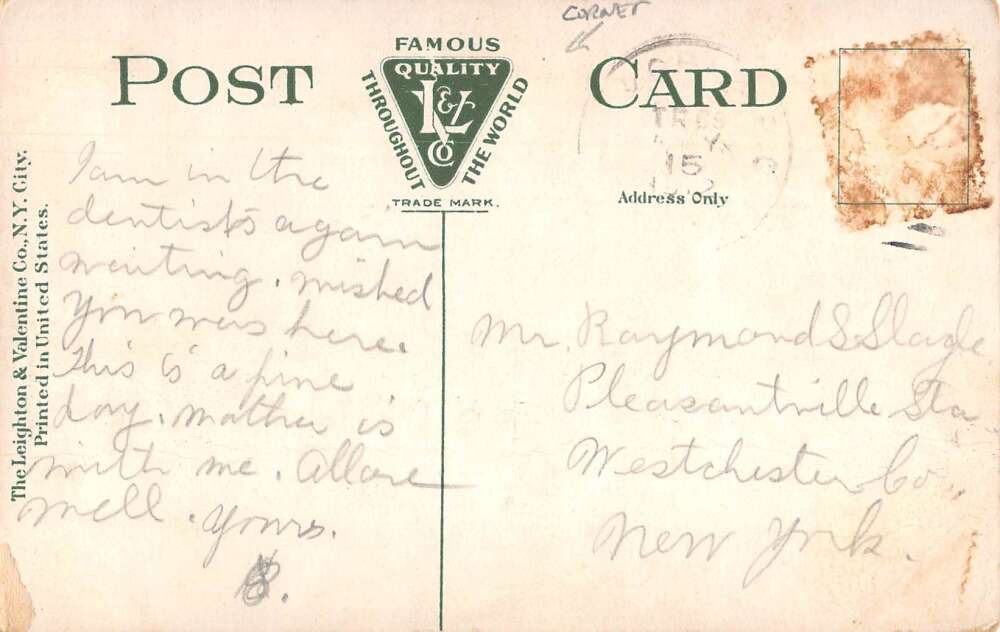 CORNER
POST CARD
FAMOUS
QUALITY
THROUGHOUT
THE WORLD
L&V
Co
TRADE MARK.
15
Address Only
The Leighton & Valentine Co., N.Y. City.
Printed in United States.
I am in the
dentists again
waiting. wished
you was here.
This is a fine
day. mother is
with me. all are
well. yours.
B.
Mr. Raymond S Slagle
Pleasantville Sta
Westchester Co.,
New York.